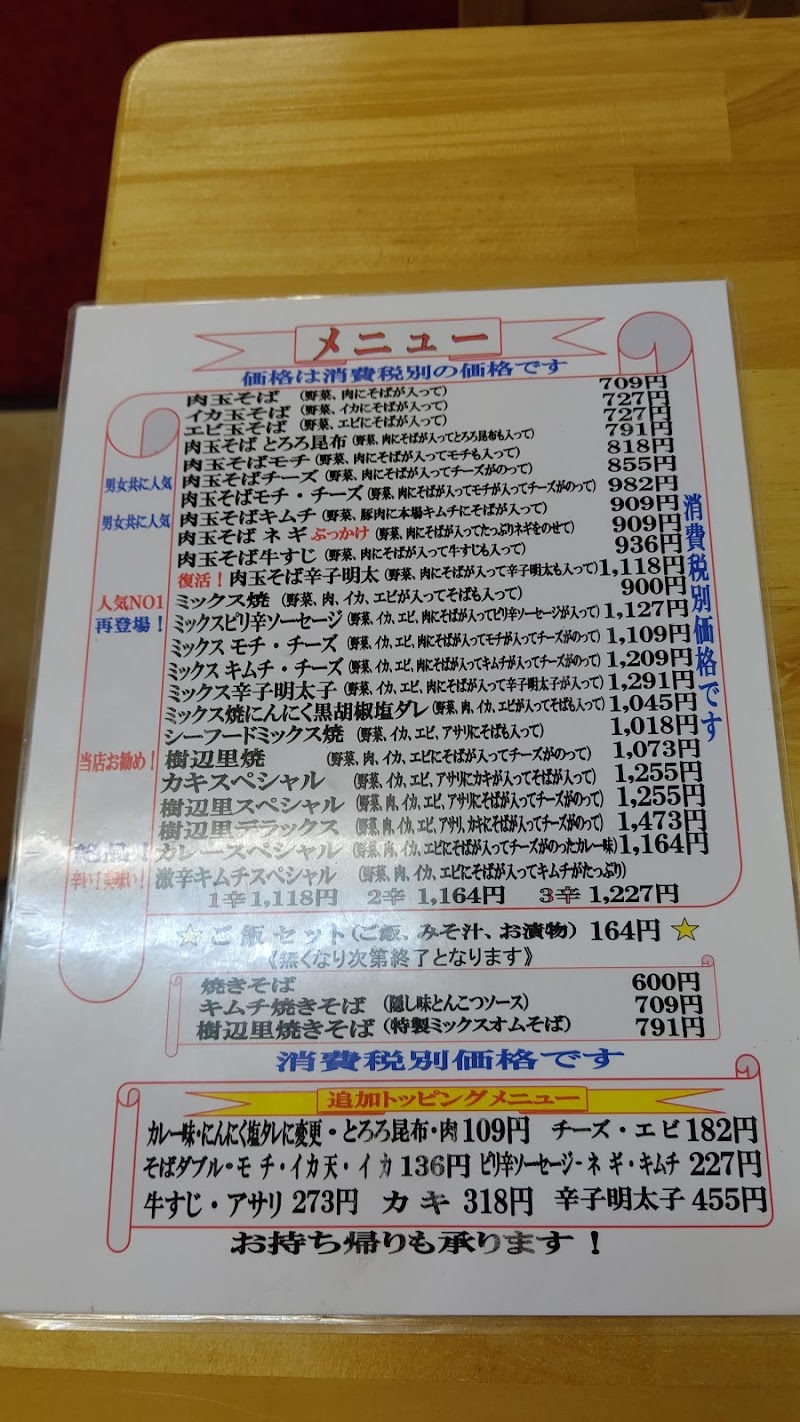 メニュー
価格は消費税別の価格です
肉玉そば (野菜、肉にそばが入って) 709円
イカ玉そば (野菜、イカにそばが入って) 727円
エビ玉そば (野菜、エビにそばが入って) 727円
肉玉そば とろろ昆布 (野菜、肉にそばが入ってとろろ昆布も入って) 791円
肉玉そばモチ (野菜、肉にそばが入ってモチも入って) 818円
男女共に人気 肉玉そばチーズ (野菜、肉にそばが入ってチーズがのって) 855円
肉玉そばモチ・チーズ (野菜、肉にそばが入ってモチが入ってチーズがのって) 982円
男女共に人気 肉玉そばキムチ (野菜、豚肉に本場キムチにそばが入って) 909円
肉玉そば ネギ ぶっかけ (野菜、肉にそばが入ってたっぷりネギをのせて) 909円
肉玉そば牛すじ (野菜、肉にそばが入って牛すじも入って) 936円
復活！肉玉そば辛子明太 (野菜、肉にそばが入って辛子明太も入って) 1,118円
人気NO1 ミックス焼 (野菜、肉、イカ、エビが入ってそばも入って) 900円
再登場！ ミックスピリ辛ソーセージ (野菜、イカ、エビ、肉にそばが入ってピリ辛ソーセージが入って) 1,127円
ミックス モチ・チーズ (野菜、イカ、エビ、肉にそばが入ってモチが入ってチーズがのって) 1,109円
ミックス キムチ・チーズ (野菜、イカ、エビ、肉にそばが入ってキムチが入ってチーズがのって) 1,209円
ミックス辛子明太子 (野菜、イカ、エビ、肉にそばが入って辛子明太子が入って) 1,291円
ミックス焼にんにく黒胡椒塩ダレ (野菜、肉、イカ、エビが入ってそばも入って) 1,045円
シーフードミックス焼 (野菜、イカ、エビ、アサリにそばも入って) 1,018円
当店お勧め！ 樹辺里焼 (野菜、肉、イカ、エビにそばが入ってチーズがのって) 1,073円
カキスペシャル (野菜、イカ、エビ、アサリにカキが入ってそばが入って) 1,255円
樹辺里スペシャル (野菜、肉、イカ、エビ、アサリにそばが入ってチーズがのって) 1,255円
樹辺里デラックス (野菜、肉、イカ、エビ、アサリ、カキにそばが入ってチーズがのって) 1,473円
カレースペシャル (野菜、肉、イカ、エビにそばが入ってチーズがのったカレー味) 1,164円
辛い！美味い！ 激辛キムチスペシャル (野菜、肉、イカ、エビにそばが入ってキムチがたっぷり)
1辛 1,118円 2辛 1,164円 3辛 1,227円
消費税別価格です
☆ご飯セット(ご飯、みそ汁、お漬物) 164円★
《無くなり次第終了となります》
焼きそば 600円
キムチ焼きそば (隠し味とんこつソース) 709円
樹辺里焼きそば (特製ミックスオムそば) 791円
消費税別価格です
追加トッピングメニュー
カレー味・にんにく塩ダレに変更・とろろ昆布・肉 109円 チーズ・エビ 182円
そばダブル・モチ・イカ天・イカ 136円 ピリ辛ソーセージ・ネギ・キムチ 227円
牛すじ・アサリ 273円 カキ 318円 辛子明太子 455円
お持ち帰りも承ります！